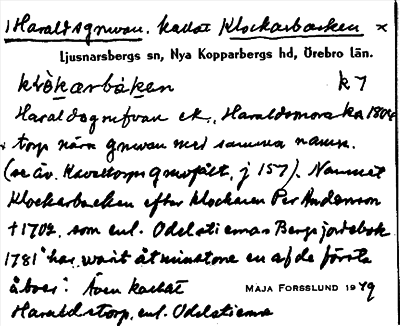 1 Haraldsgruvan. kallat Klockarbacken x
Ljusnarsbergs sn, Nya Kopparbergs hd, Örebro län.
klòkærbákən k 7
Haraldsgrufvan ek., Haraldsmora ka 1804
torp nära gruvan med samma namn.
(se äv. Kavaltorps gruvfält, j 157). Namnet
Klockarbacken efter klockaren Per Andersson
† 1702, som enl. Odelstiernas Bergsjordebok
1781 "har varit åtminstone en af de första
åboer". Även kallat MAJA FORSSLUND 1949
Haraldstorp, enl. Odelstierna